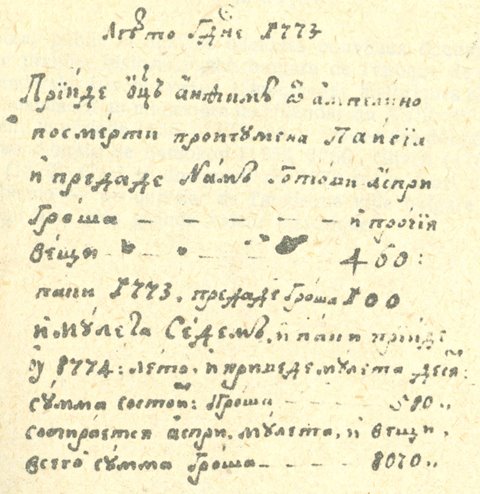 Лѣто Гдне 1773
Прїиде оц҃ъ анѳимъ ѿ ампелино
посмерти проигумена Паисїа
и предаде Намъ Готови аспри
Гроша — — — — — и прочїи
вещи 400:
паки 1773, предаде Гроша 100
и мулета Седемъ, и паки прїиде
у 1774: лѣто, и приведе мулета десѧ:
сумма состои: Гроша — — 580„
собирается аспри, мулета, и вещи,
всего сумма Гроша — — —